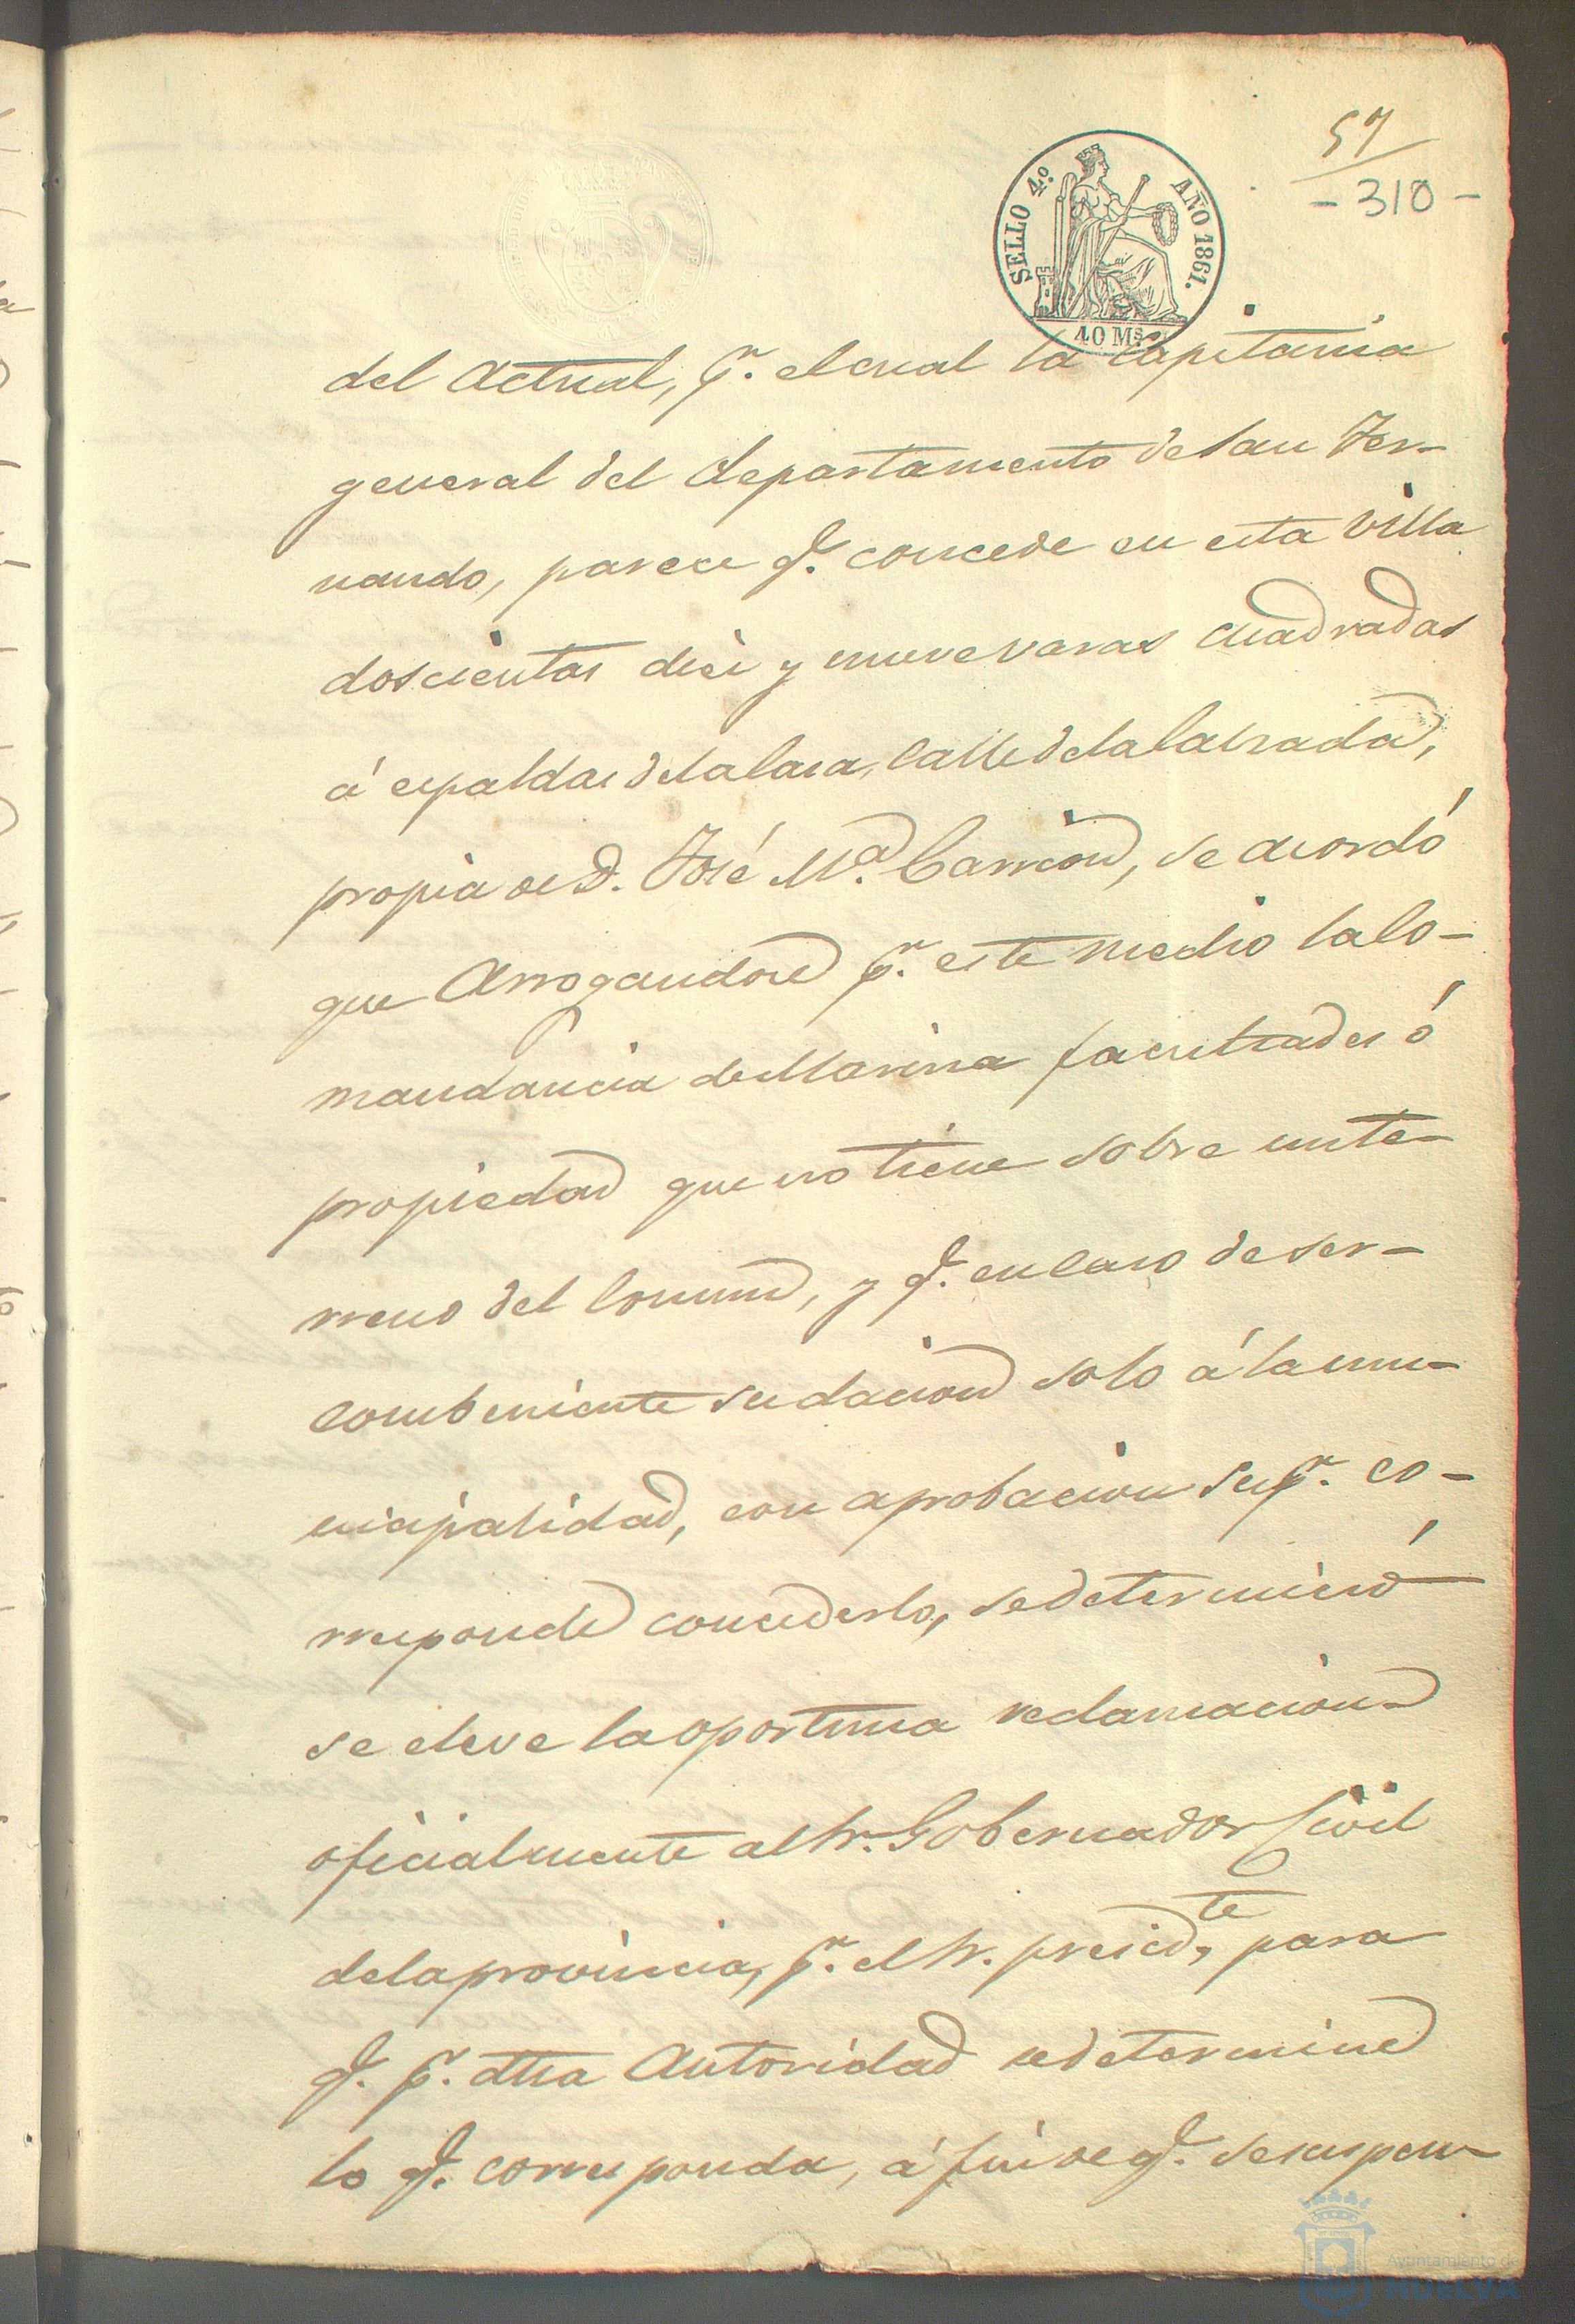 57
- 310 -
SELLO 4.º AÑO 1861.
40 Ms.
del actual, pr. el cual la Capitania
general del departamento de San Fer-
nando, parece q. concede en esta Villa
doscientas dies y nueve varas cuadradas
á espaldas de la Casa, Calle de la Calzada,
propia de D. José Ma. Carrion, se acordó
que arrogandose pr. este medio la Co-
mandancia de Marina facultades ó
propiedad que no tiene sobre un te-
rreno del Comun, y q. en caso de ser
combeniente su dacion solo á la mu-
nicipalidad, con aprobacion supr. co-
rresponde concederlo, se determinó
se eleve la oportuna reclamacion
oficialmente al Sr. Gobernador Civil
de la provincia, pr. el Sr. presidte, para
q. pr. dha Autoridad se determine
lo q. corresponda, á fin de q. se suspen-
Ayuntamiento de
HUELVA